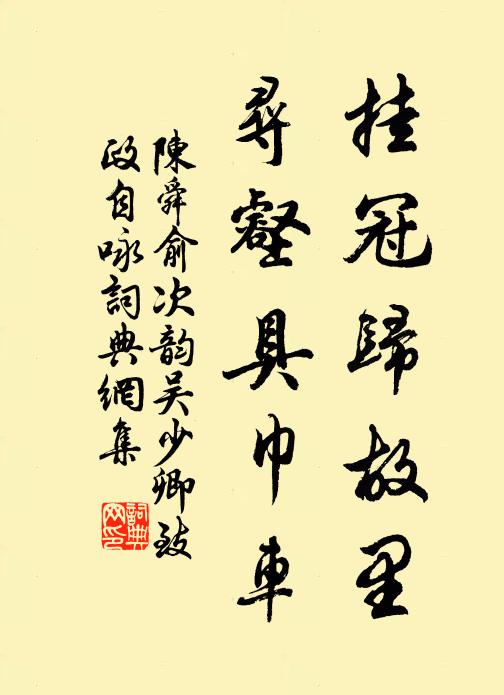 挂冠歸故里
尋壑具巾車
陳舜俞次韵吴少卿致
政自咏詞典網集
詞典
网印